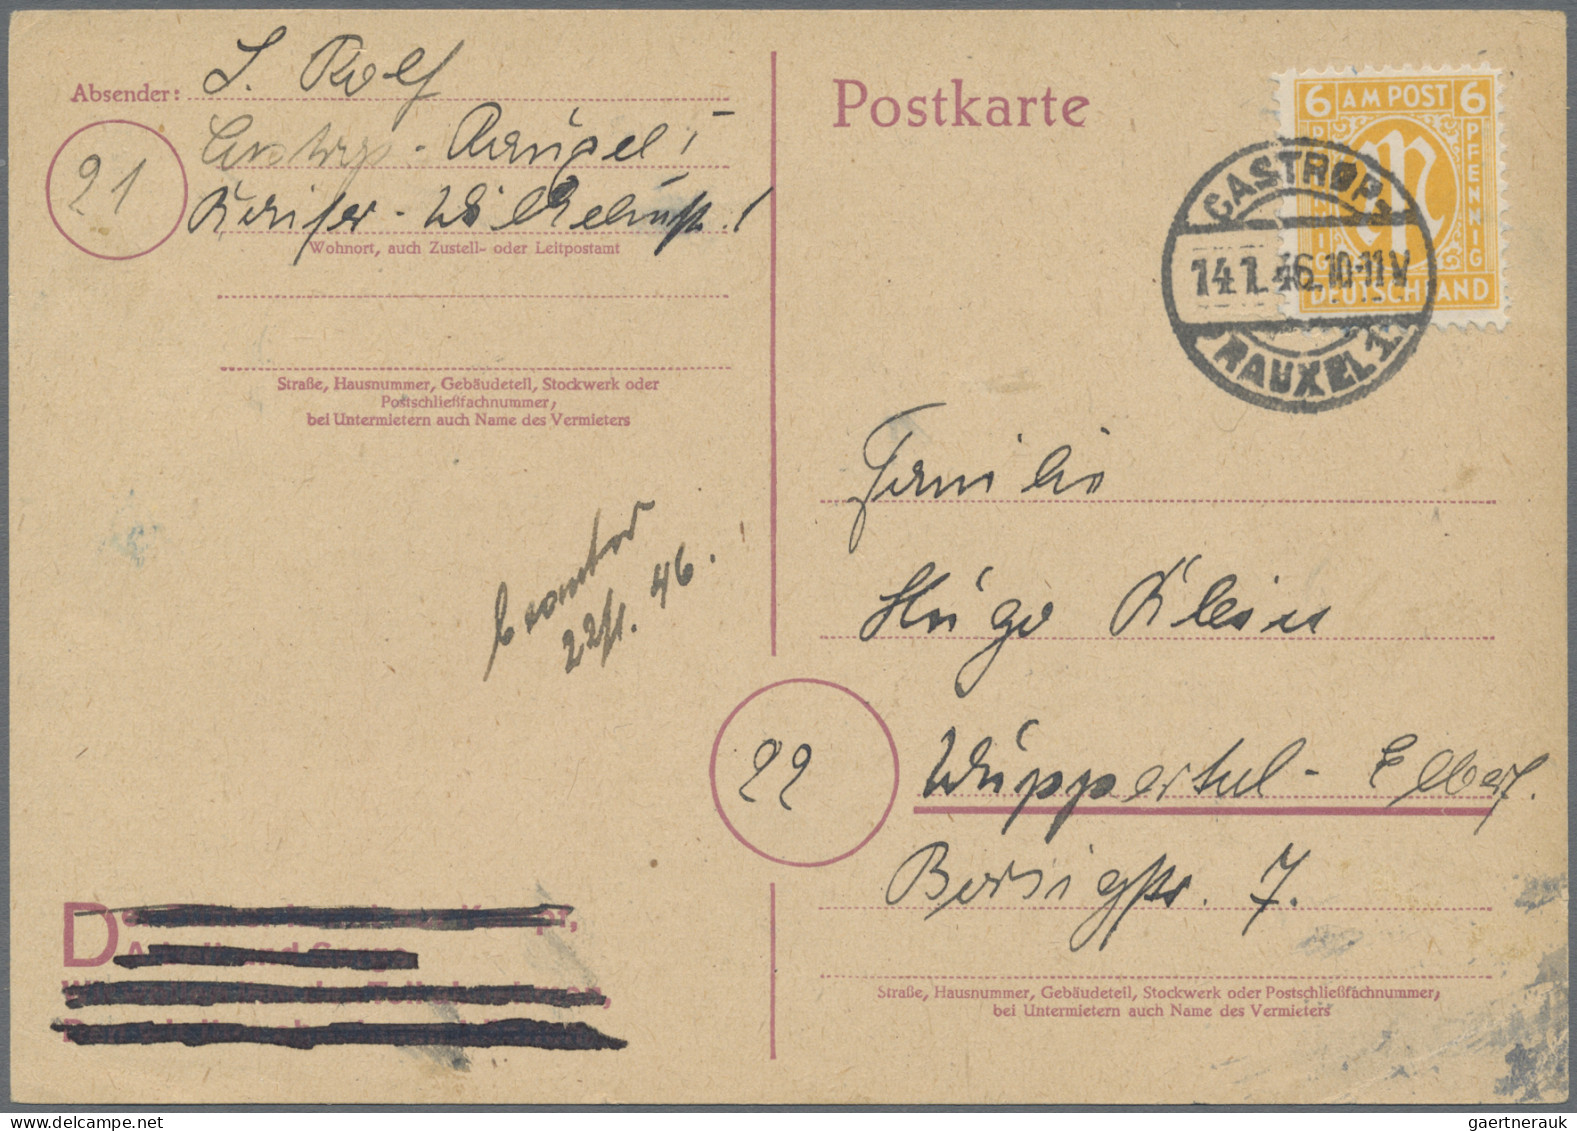 Absender: J. Rolf
Castrop-Rauxel I
21
Kaiser-Wilhelmstr. 1
Wohnort, auch Zustell- oder Leitpostamt
Straße, Hausnummer, Gebäudeteil, Stockwerk oder
Postschließfachnummer,
bei Untermietern auch Name des Vermieters
Postkarte
6 AM POST 6
PFENNIG
PFENNIG
DEUTSCHLAND
CASTROP-
14.1.46.10-11V
RAUXEL 1
Familie
Hugo Klein
22
Wuppertal-Elberf.
Borsigstr. 7.
Straße, Hausnummer, Gebäudeteil, Stockwerk oder Postschließfachnummer,
bei Untermietern auch Name des Vermieters
22/1. 46.
gaertnerauk